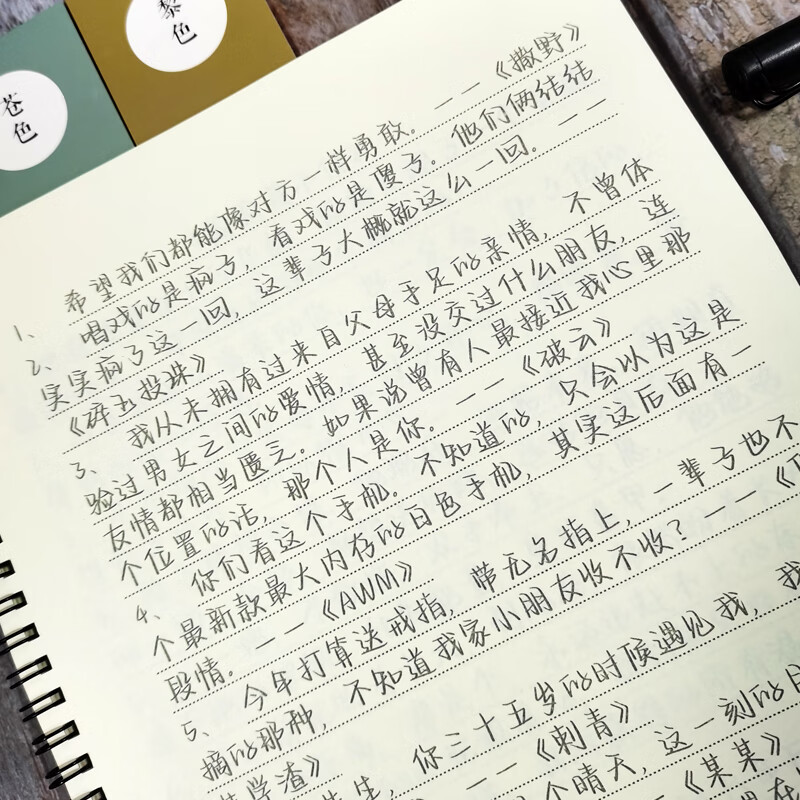 苍色
黎色
1、希望我们都能像对方一样勇敢。——《撒野》
2、唱戏的是疯子，看戏的是傻子。他们俩结结
实实疯了这一回，这辈子大概就这么一回。——
《碎玉投珠》
3、我从未拥有过来自父母手足的亲情，不曾体
验过男女之间的爱情，甚至没交过什么朋友，连
友情都相当匮乏。如果说曾有人最接近我心里那
个位置的话，那个人是你。——《破云》
4、你们看这个手机。不知道的，只会以为这是
个最新款最大内存的白色手机，其实这后面有一
段情。——《AWM》
5、今年打算送戒指，带无名指上，一辈子也不
摘的那种，不知道我家小朋友收不收？——《
学渣》
生，你三十五岁的时候遇见我，我
——《刺青》
个晴天，这一刻的
——《某某》